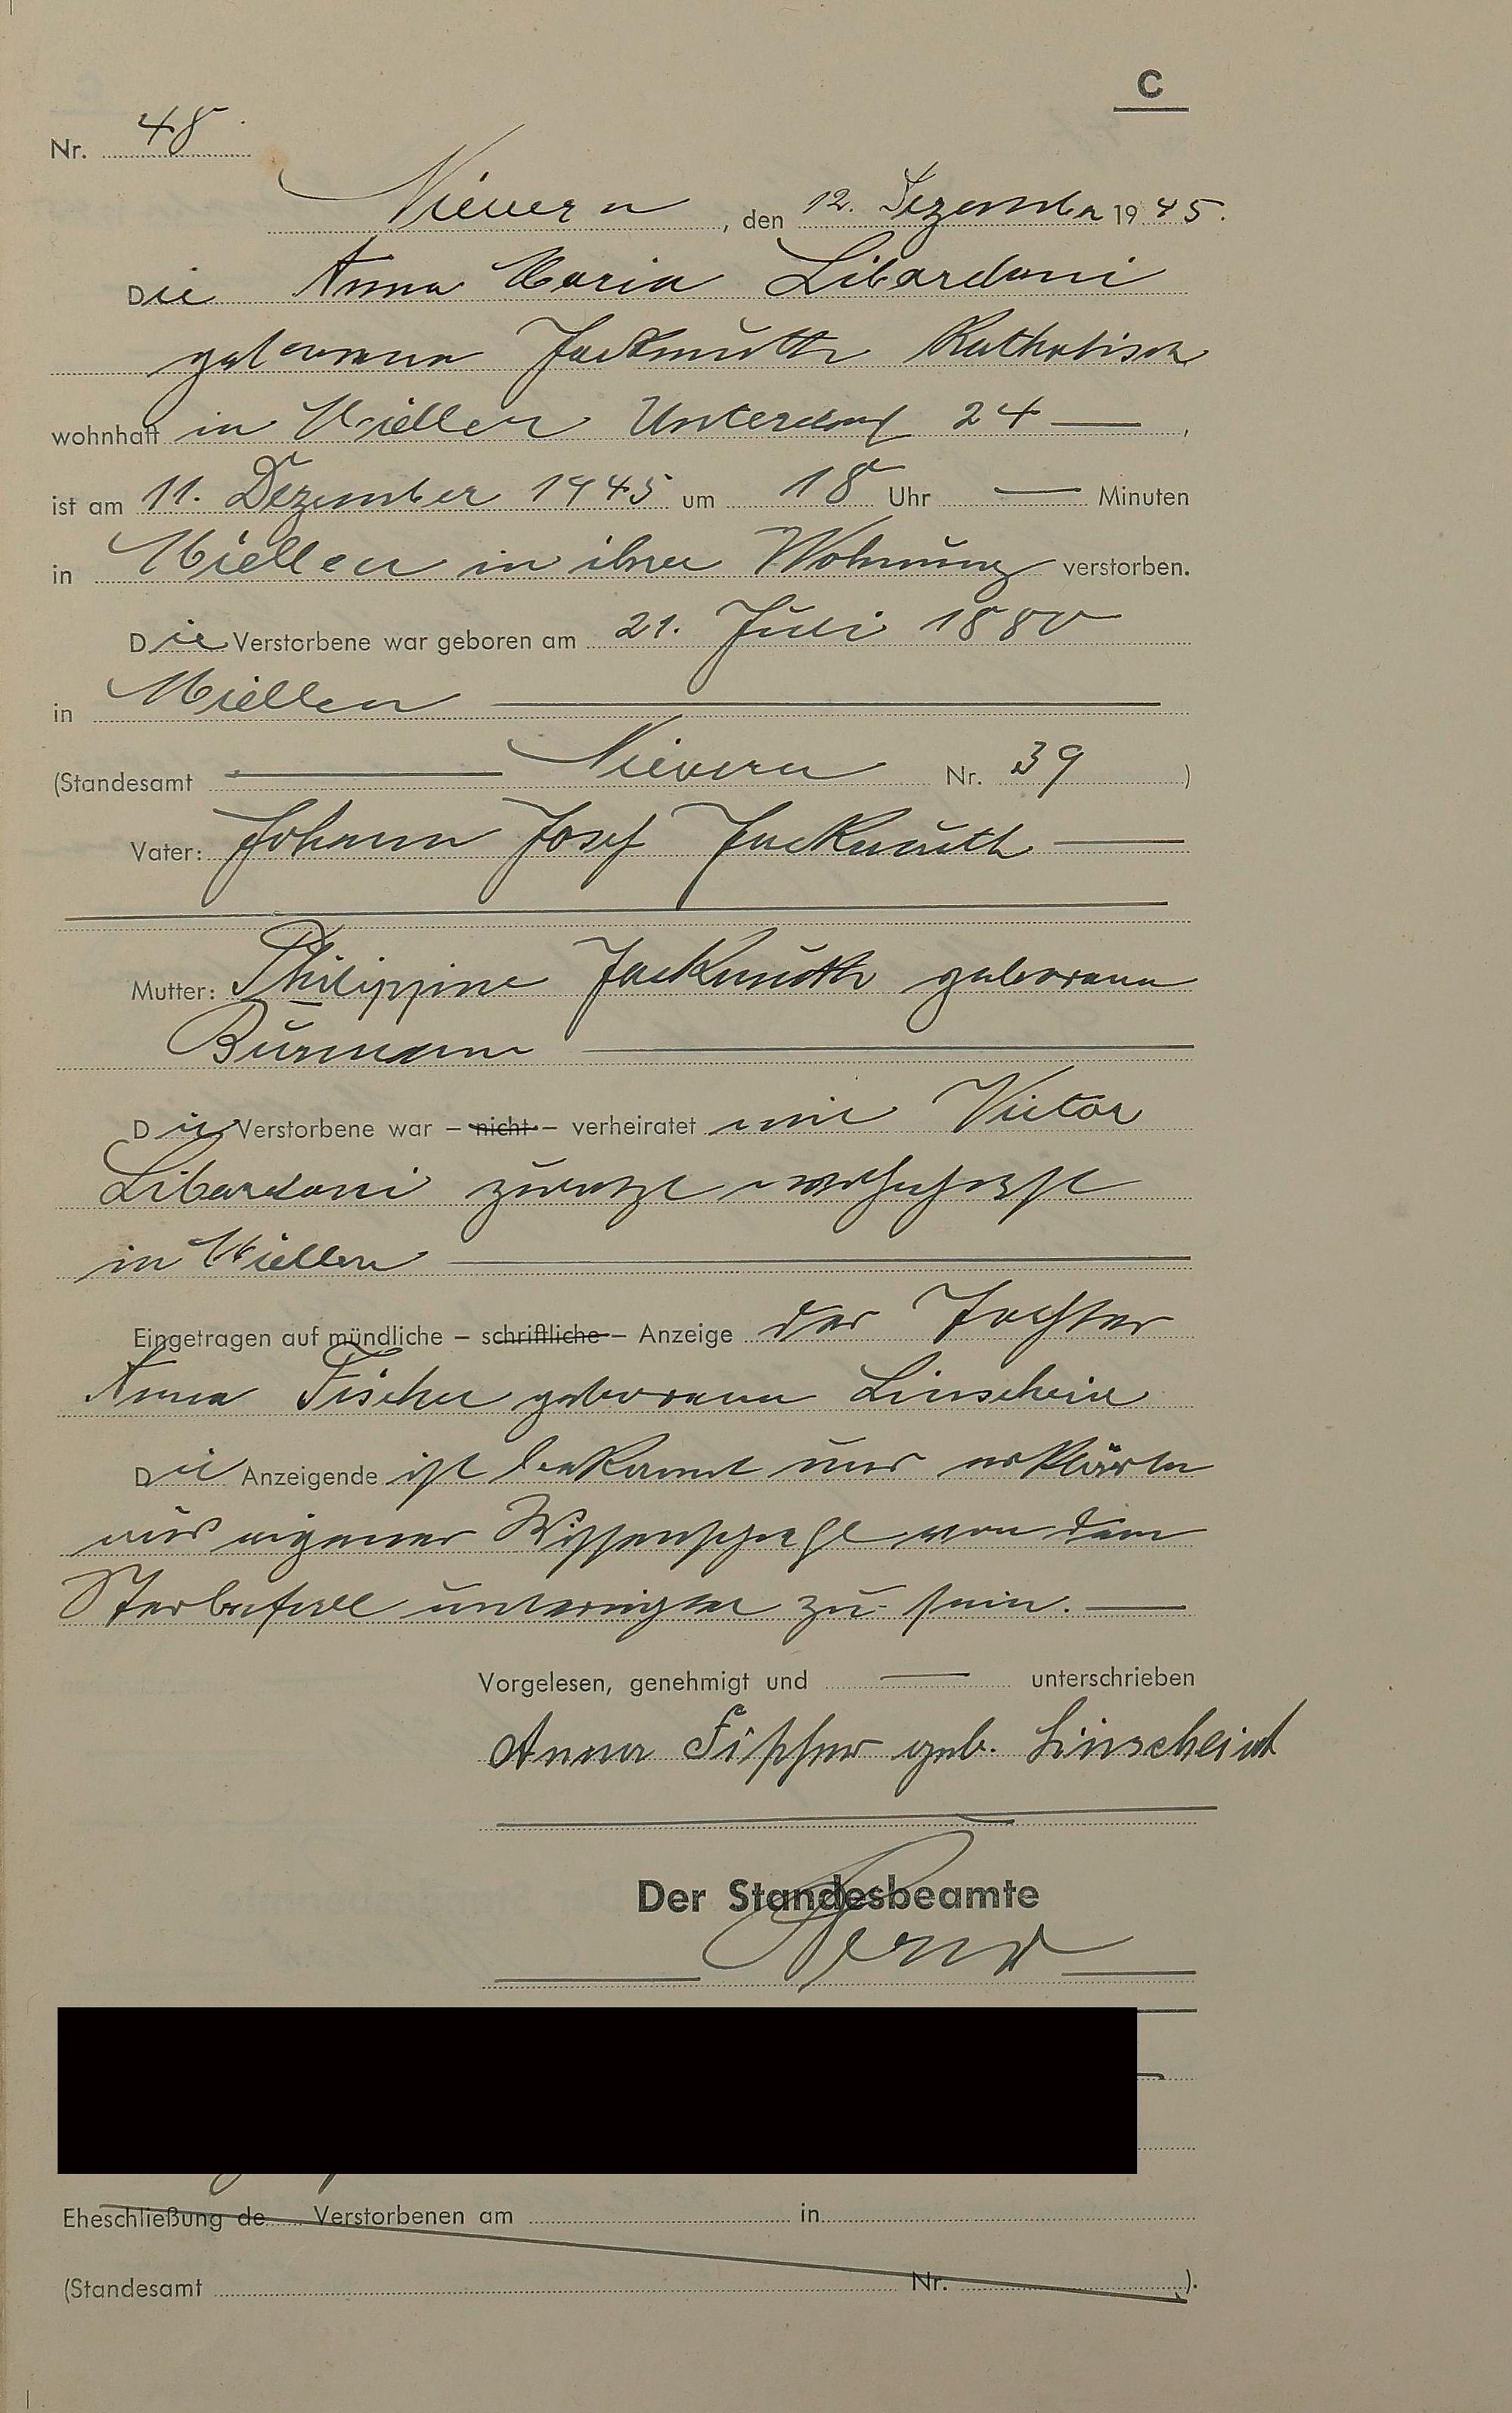 C
Nr. 48
Nievern, den 12. Dezember 1945.
Die Anna Maria Libardoni
geborene Jackmuth Katholisch
wohnhaft in Miellen Unterdorf 24 —,
ist am 11. Dezember 1945 um 18 Uhr — Minuten
in Miellen in ihrer Wohnung verstorben.
Die Verstorbene war geboren am 21. Juli 1880
in Miellen —
(Standesamt — Nievern Nr. 39 )
Vater: Johann Josef Jackmuth —
Mutter: Philippine Jackmuth geborene
Burmann —
Die Verstorbene war – nicht – verheiratet mit Victor
Libardoni zuletzt wohnhaft
in Miellen —
Eingetragen auf mündliche – schriftliche – Anzeige der Tochter
Anna Fischer geborene Linscheid
Die Anzeigende ist bekannt und erklärte
aus eigener Wissenschaft von dem
Sterbefall unterrichtet zu sein. —
Vorgelesen, genehmigt und — unterschrieben
Anna Fischer geb. Linscheid
Der Standesbeamte
Eheschließung de Verstorbenen am in
(Standesamt Nr. ).